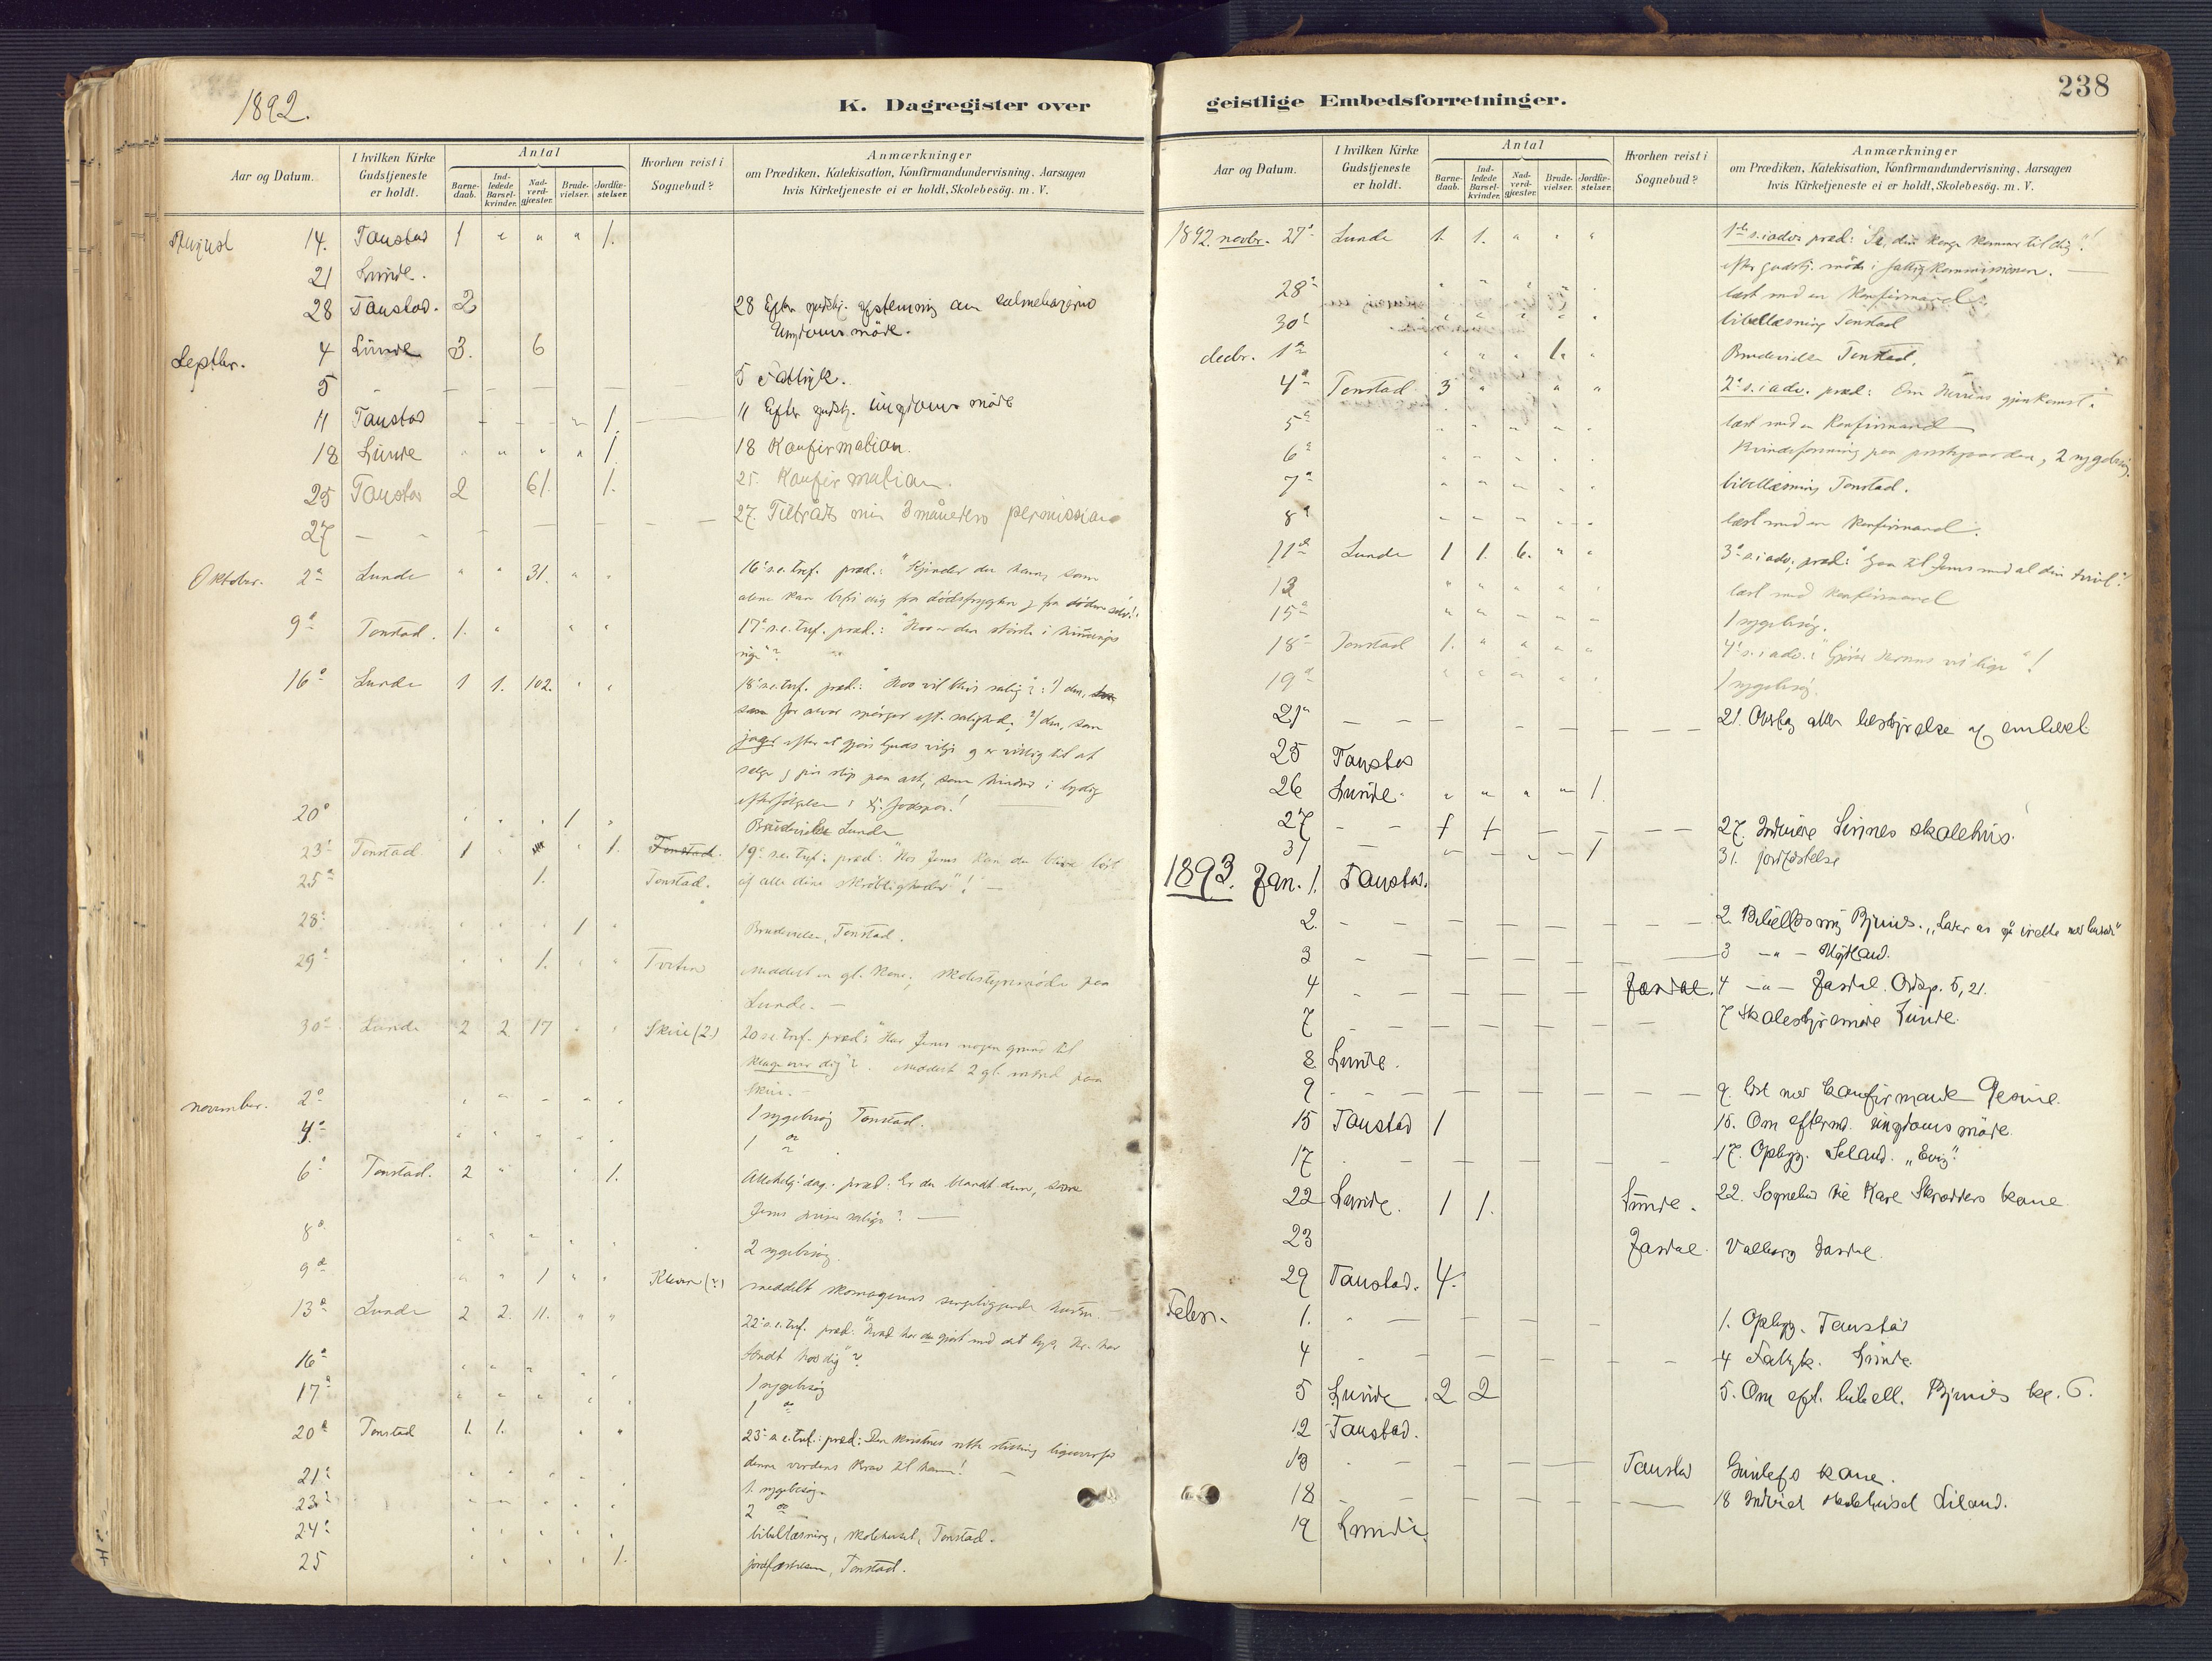 1892.
K. Dagregister over
Aar og Datum.
I hvilken Kirke Gudstjeneste er holdt.
Antal
Barnedaab.
Indledede Barselkvinder.
Nadverdgjæster.
Brudevielser.
Jordfæstelser.
Hvorhen reist i Sognebud?
Anmærkninger
om Prædiken, Katekisation, Konfirmandundervisning. Aarsagen
hvis Kirketjeneste ei er holdt, Skolebesøg. m. V.
August 14. Tonstad 1 " " " 1.
21 Lunde.
28 Tonstad. 2 28 Efter
Ungdomsmöde.
Septbr. 4 Lunde 3. 6
5 - 5 Fattigk.
11 Tonstad 1. 11 Efter gudstj. ungdomsmöde
18 Lunde " " " " 1. 18 Konfirmation.
25 Tonstad 2 61. 1. 25. Konfirmation.
27 27. Tiltrådt min 3 måneders permission
Oktober. 2den Lunde " " 31. " " 16. s.e. tref. præd.: "Kjender du ham, som
alene kan befri dig fra dødsfrygten og fra døden selv!"
9de Tonstad. 1. " " " 17. s.e. tref. præd.: "Hvo er den störste i himmeriges
rige"?
16de Lunde 1 1. 102. " " 18. s.e. tref. præd.: "Hvo vil blive salig"?: 1) den,
som for alvor spörger eft. salighed, 2) den, som
jager efter at gjöre Guds vilje og er villig til at
sælge og give slip paa alt, som hindrer i lydig
efterfölgelse i fodspor!
20de 1 Brudevielse Lunde
23de Tonstad 1 " " 1. Tonstad. 19. s.e. tref. præd.: "Hos Jesus kan du blive löst
25de 1. Tonstad. af alle dine skröbeligheder"!
28de 1 Brudevielse, Tonstad.
29de 1. meddelt en gl. kone; skolestyremöde paa
Lunde.
30te Lunde 2 2 17 " " Skeie (2) 20 s.e. tref. præd.: "Har Jesus nogen grund til
klage over dig"? meddelt 2 gl. paa
Skeie.
november. 2den 1 sygebesög Tonstad.
4de 1 do
6te Tonstad. 2 " " 1. Allehelg. dag. præd.: Er du blandt dem, som
Jesus priser salige?
8de 2 sygebesög.
9de 1 meddelt skomagerens sengeliggende hustru.
13de Lunde 2 2. 11. " " 22. s.e. tref. præd.: "Hvad har du gjort med det lys, Hr. har
tændt hos dig"?
16de 1 sygebesög
17de 1 do
20de Tonstad 1. 1. " " 23. s.e. tref.: præd.: Den kristnes rette stilling ligeoverfor
denne verdens krav til ham!
21de 1. sygebesög.
23de 2 do
24de bibellæsning, skolehuset, Tonstad.
25 1. jordfæstelsen, Tonstad.
238
geistlige Embedsforretninger.
Aar og Datum.
I hvilken Kirke Gudstjeneste er holdt.
Antal
Barnedaab.
Indledede Barselkvinder.
Nadverdgjæster.
Brudevielser.
Jordfæstelser.
Hvorhen reist i Sognebud?
Anmærkninger
om Prædiken, Katekisation, Konfirmandundervisning, Aarsagen
hvis Kirketjeneste ei er holdt, Skolebesøg. m. V.
1892. novbr. 27de Lunde 1. 1. " " " 1ste s. i adv. præd: "Se, din konge kommer til dig"!
efter gudstj. möde i fattigkommissionen.
28de læst med en konfirmand.
30te bibellæsning Tonstad
decbr. 1ste 1. Brudevielse Tonstad.
4de Tonstad 3 " " " 2. s. i adv. præd: Om Herrens gjenkomst.
5te læst med en konfirmand
6te Kvindeforening paa prestgaarden, 2 sygebesög.
7de bibellæsning Tonstad.
8de læst med en konfirmand.
11te Lunde 1 1. 6. " " 3. s. i adv. præd: "Gaa til Jesus med al din tvivl"!
13 læst med konfirmand
15de 1 sygebesög.
18de Tonstad 1. " " " " 4. s. i adv.: "Gjörer Herrens vei lige"!
19de 1 sygebesög.
21de 21. Overtog atter bestyrelse af embedet
25 Tonstad
26 Lunde. " " " " 1.
27 - - † † 27. Indviede Sinnes skolehus.
31 1 31. jordfæstelse
1893. Jan. 1. Tonstad.
2. 2. Bibellæsning
3 3 -"-
4 Josdal. 4 -"- Josdal. Ordsp. 5, 21.
7 7 Skolestyremöde Lunde.
8 Lunde.
9 9. læst med konfirmand
15 Tonstad 1 15. Om efterm. ungdomsmöde.
17 17. Opbygg. "Evig".
22 Lunde. 1 1. Lunde. 22. Sognebud Skrædders kone.
23 Josdal. Valborg Josdal.
29 Tonstad. 4.
Febr. 1. 1. Opbygg. Tonstad
4 4 Fatigk. Lunde.
5 Lunde 2 2 5. Om eft. bibell.
12 Tonstad.
13 Tonstad Gunlefs kone.
18 18 Indviet skolehuset Liland.
19 Lunde.